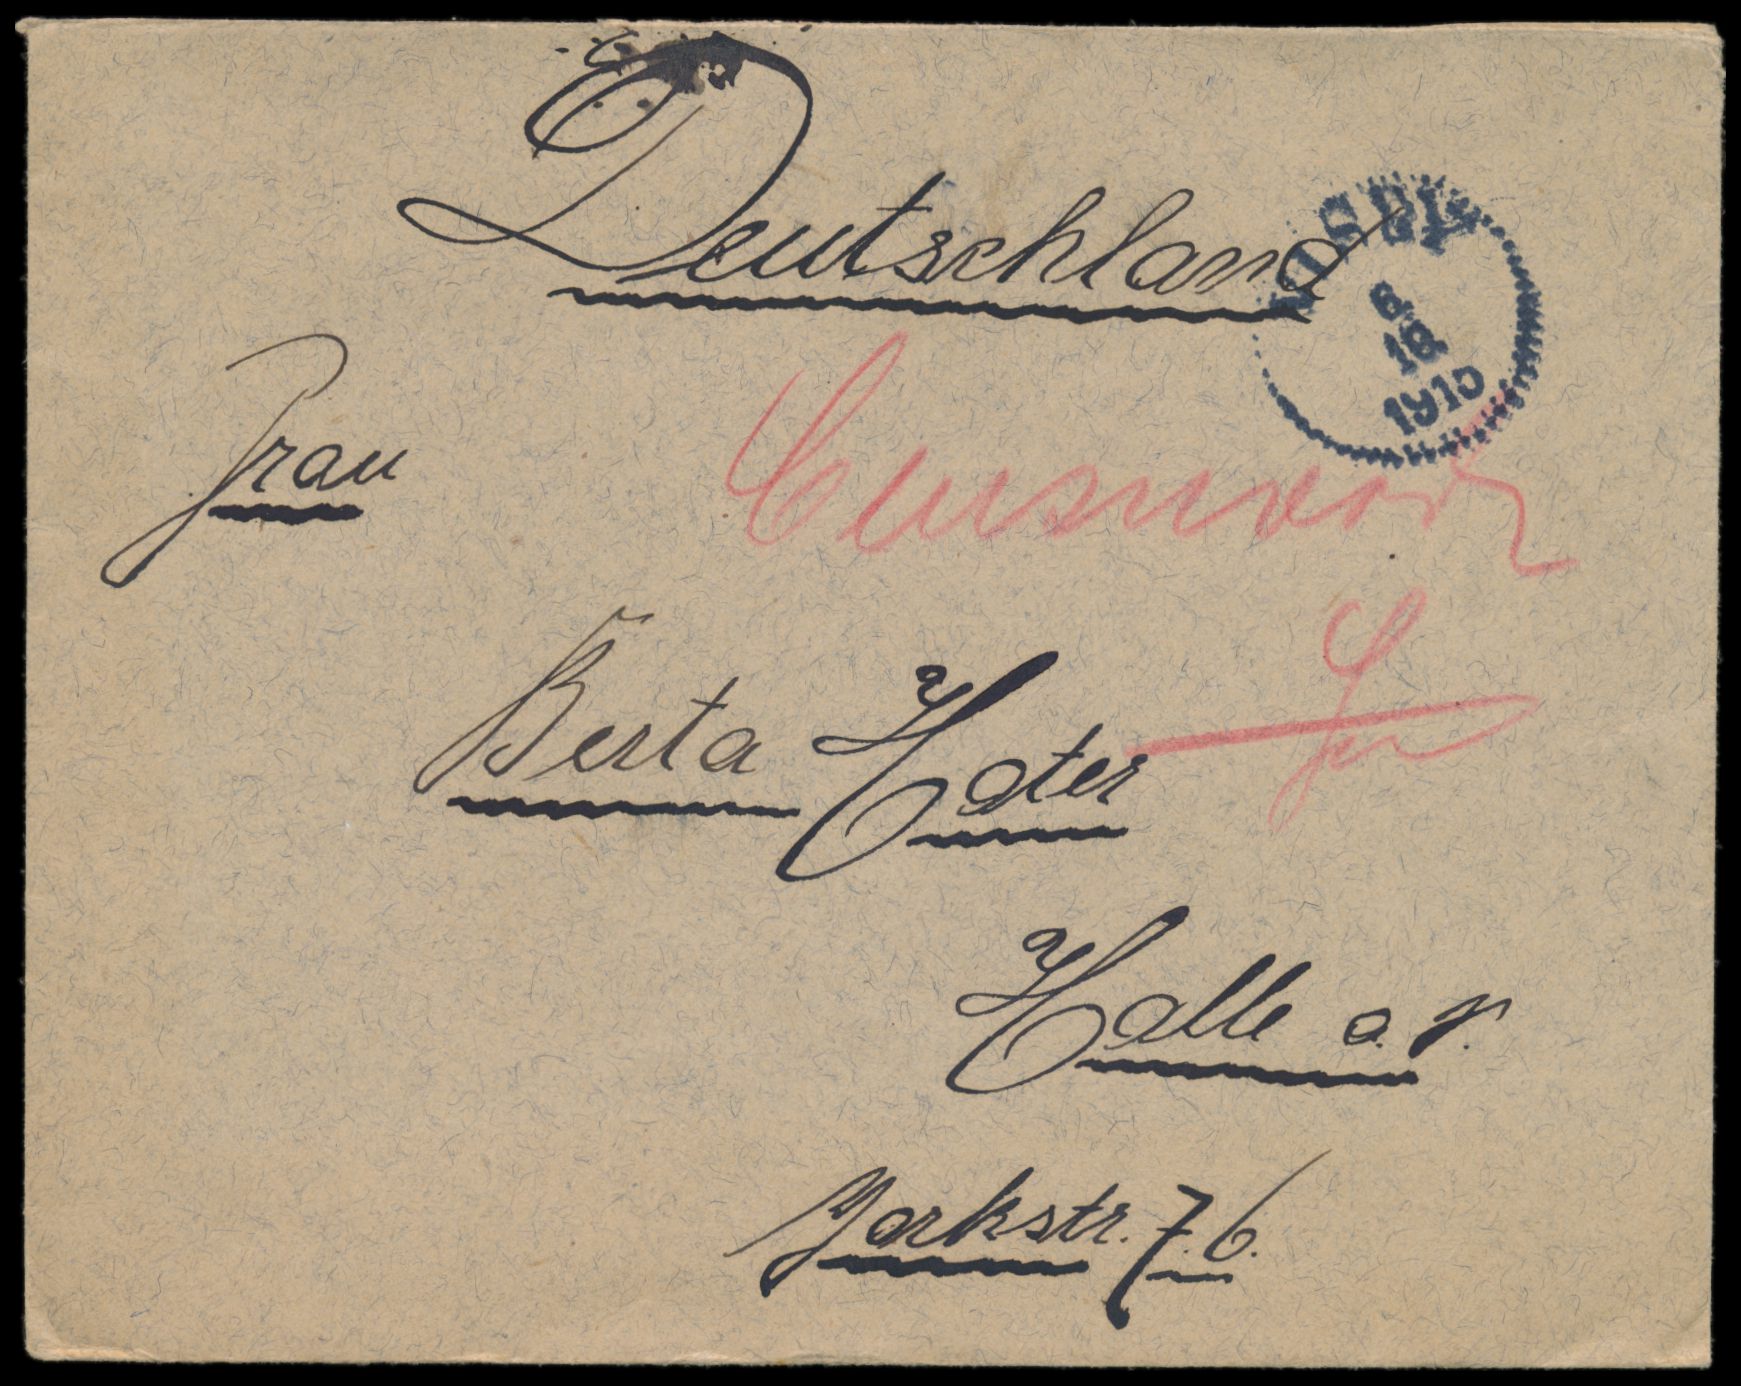 Deutschland
VISBY
6
10
1915
Frau
Berta Hater
Halle a. S.
Yorkstr. 76.